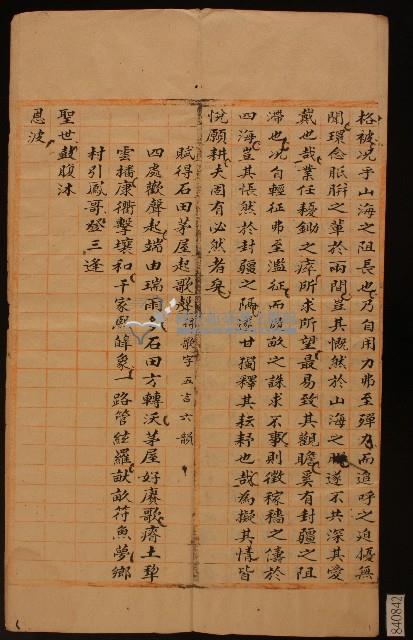 格被况于山海之阻長也乃自用力弗至殫力而追呼之迫擾無
聞環念胝胼之輩於兩間豈其慨然於山海之遂不共深其愛
戴也哉業任耰鋤之瘁所求所望最易致其觀瞻奚有封疆之阻
滯也况自輕征弗至濫征而畝之誅求不事則徵稼穡之儔於
四海豈其悵然於封疆之隔遂甘獨釋其耘耔也哉為擬其情皆
悅願耕夫固有必然者矣
賦得石田茅屋起歌聲得歌字五言六韻
四處歡聲起端由瑞雨石田方轉沃茅屋好賡歌瘠土犂
雲播康衢擊壤和千家熙皞象一路管絃羅畝符魚夢鄉
村引鳳哥登三逢
聖世鼓腹沐
恩波
840842